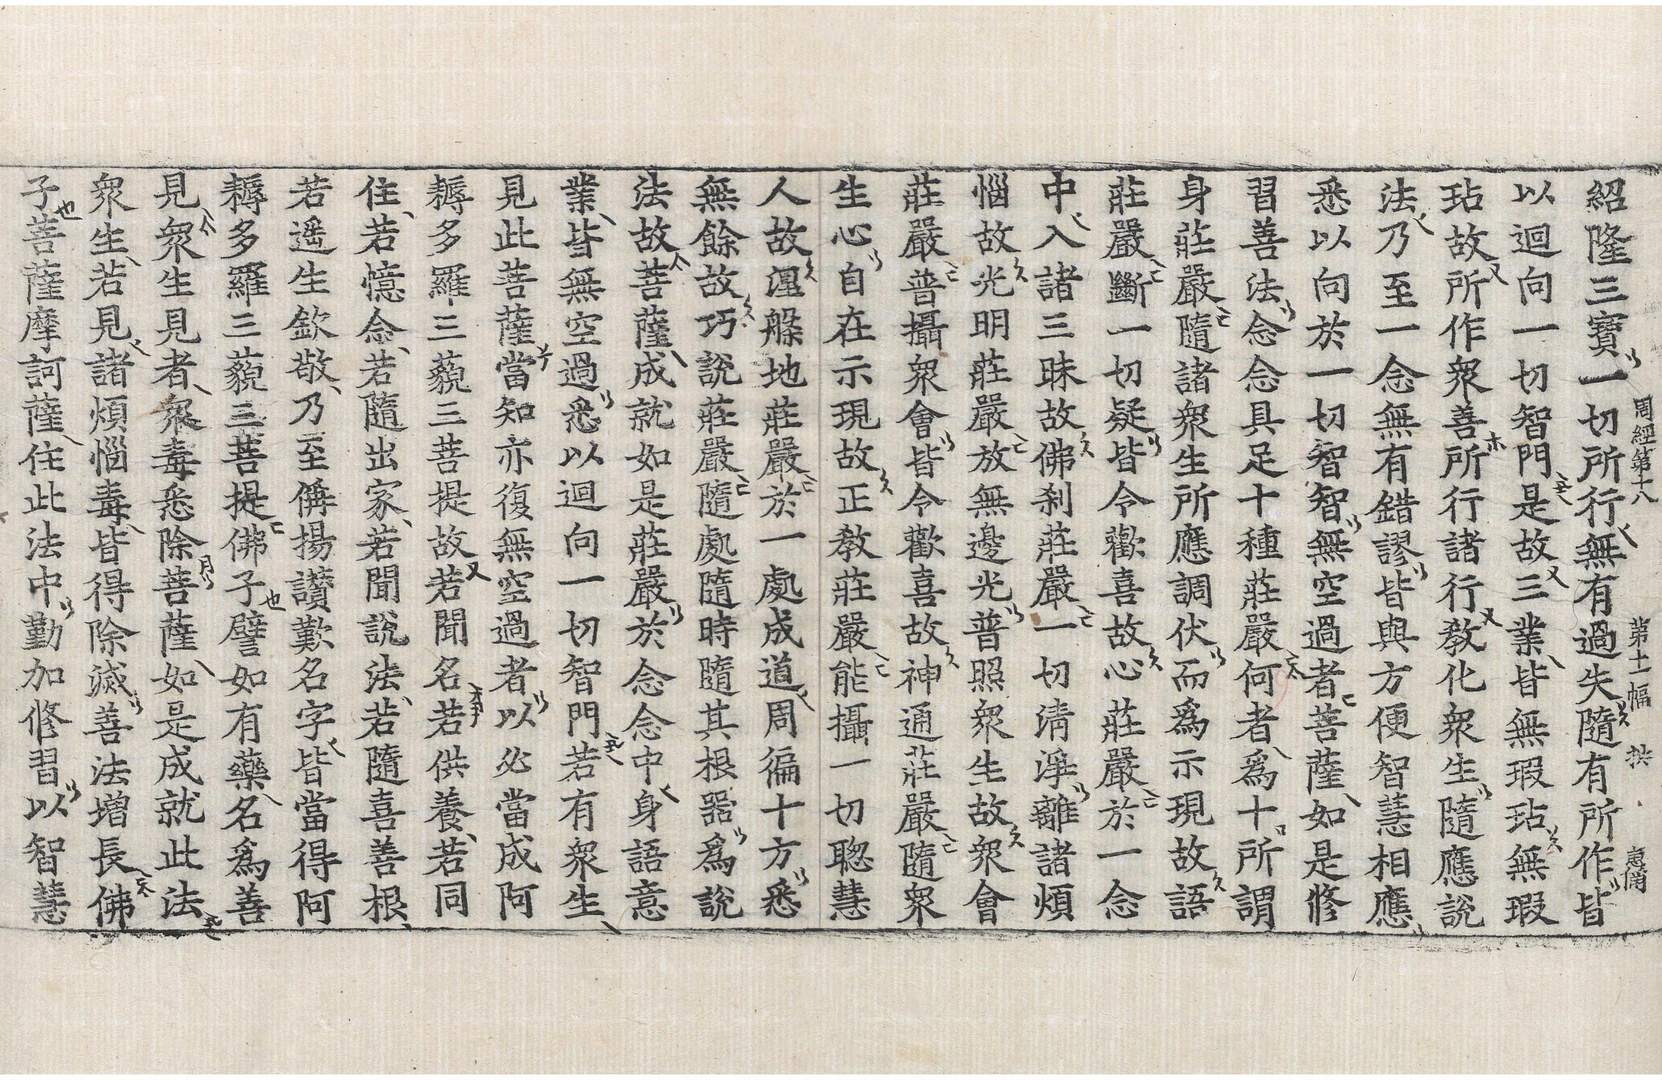 紹隆三寶一切所行無有過失隨有所作皆
周經第十八 第十一幅
以迴向一切智門是故三業皆無瑕玷無瑕
玷故所作衆善所行諸行教化衆生隨應說
法乃至一念無有錯謬皆與方便智慧相應
悉以向於一切智智無空過者菩薩如是修
習善法念念具足十種莊嚴何者爲十所謂
身莊嚴隨諸衆生所應調伏而爲示現故語
莊嚴斷一切疑皆令歡喜故心莊嚴於一念
中入諸三昧故佛刹莊嚴一切清淨離諸煩
惱故光明莊嚴放無邊光普照衆生故衆會
莊嚴普攝衆會皆令歡喜故神通莊嚴隨衆
生心自在示現故正教莊嚴能攝一切聦慧
人故涅槃地莊嚴於一處成道周徧十方悉
無餘故巧說莊嚴隨處隨時隨其根器爲說
法故菩薩成就如是莊嚴於念念中身語意
業皆無空過悉以迴向一切智門若有衆生
見此菩薩當知亦復無空過者以必當成阿
耨多羅三藐三菩提故若聞名若供養若同
住若憶念若隨出家若聞說法若隨喜善根
若遥生欽敬乃至偁揚讃歎名字皆當得阿
耨多羅三藐三菩提佛子譬如有藥名爲善
見衆生見者衆毒悉除菩薩如是成就此法
衆生若見諸煩惱毒皆得除滅善法增長佛
子菩薩摩訶薩住此法中勤加修習以智慧